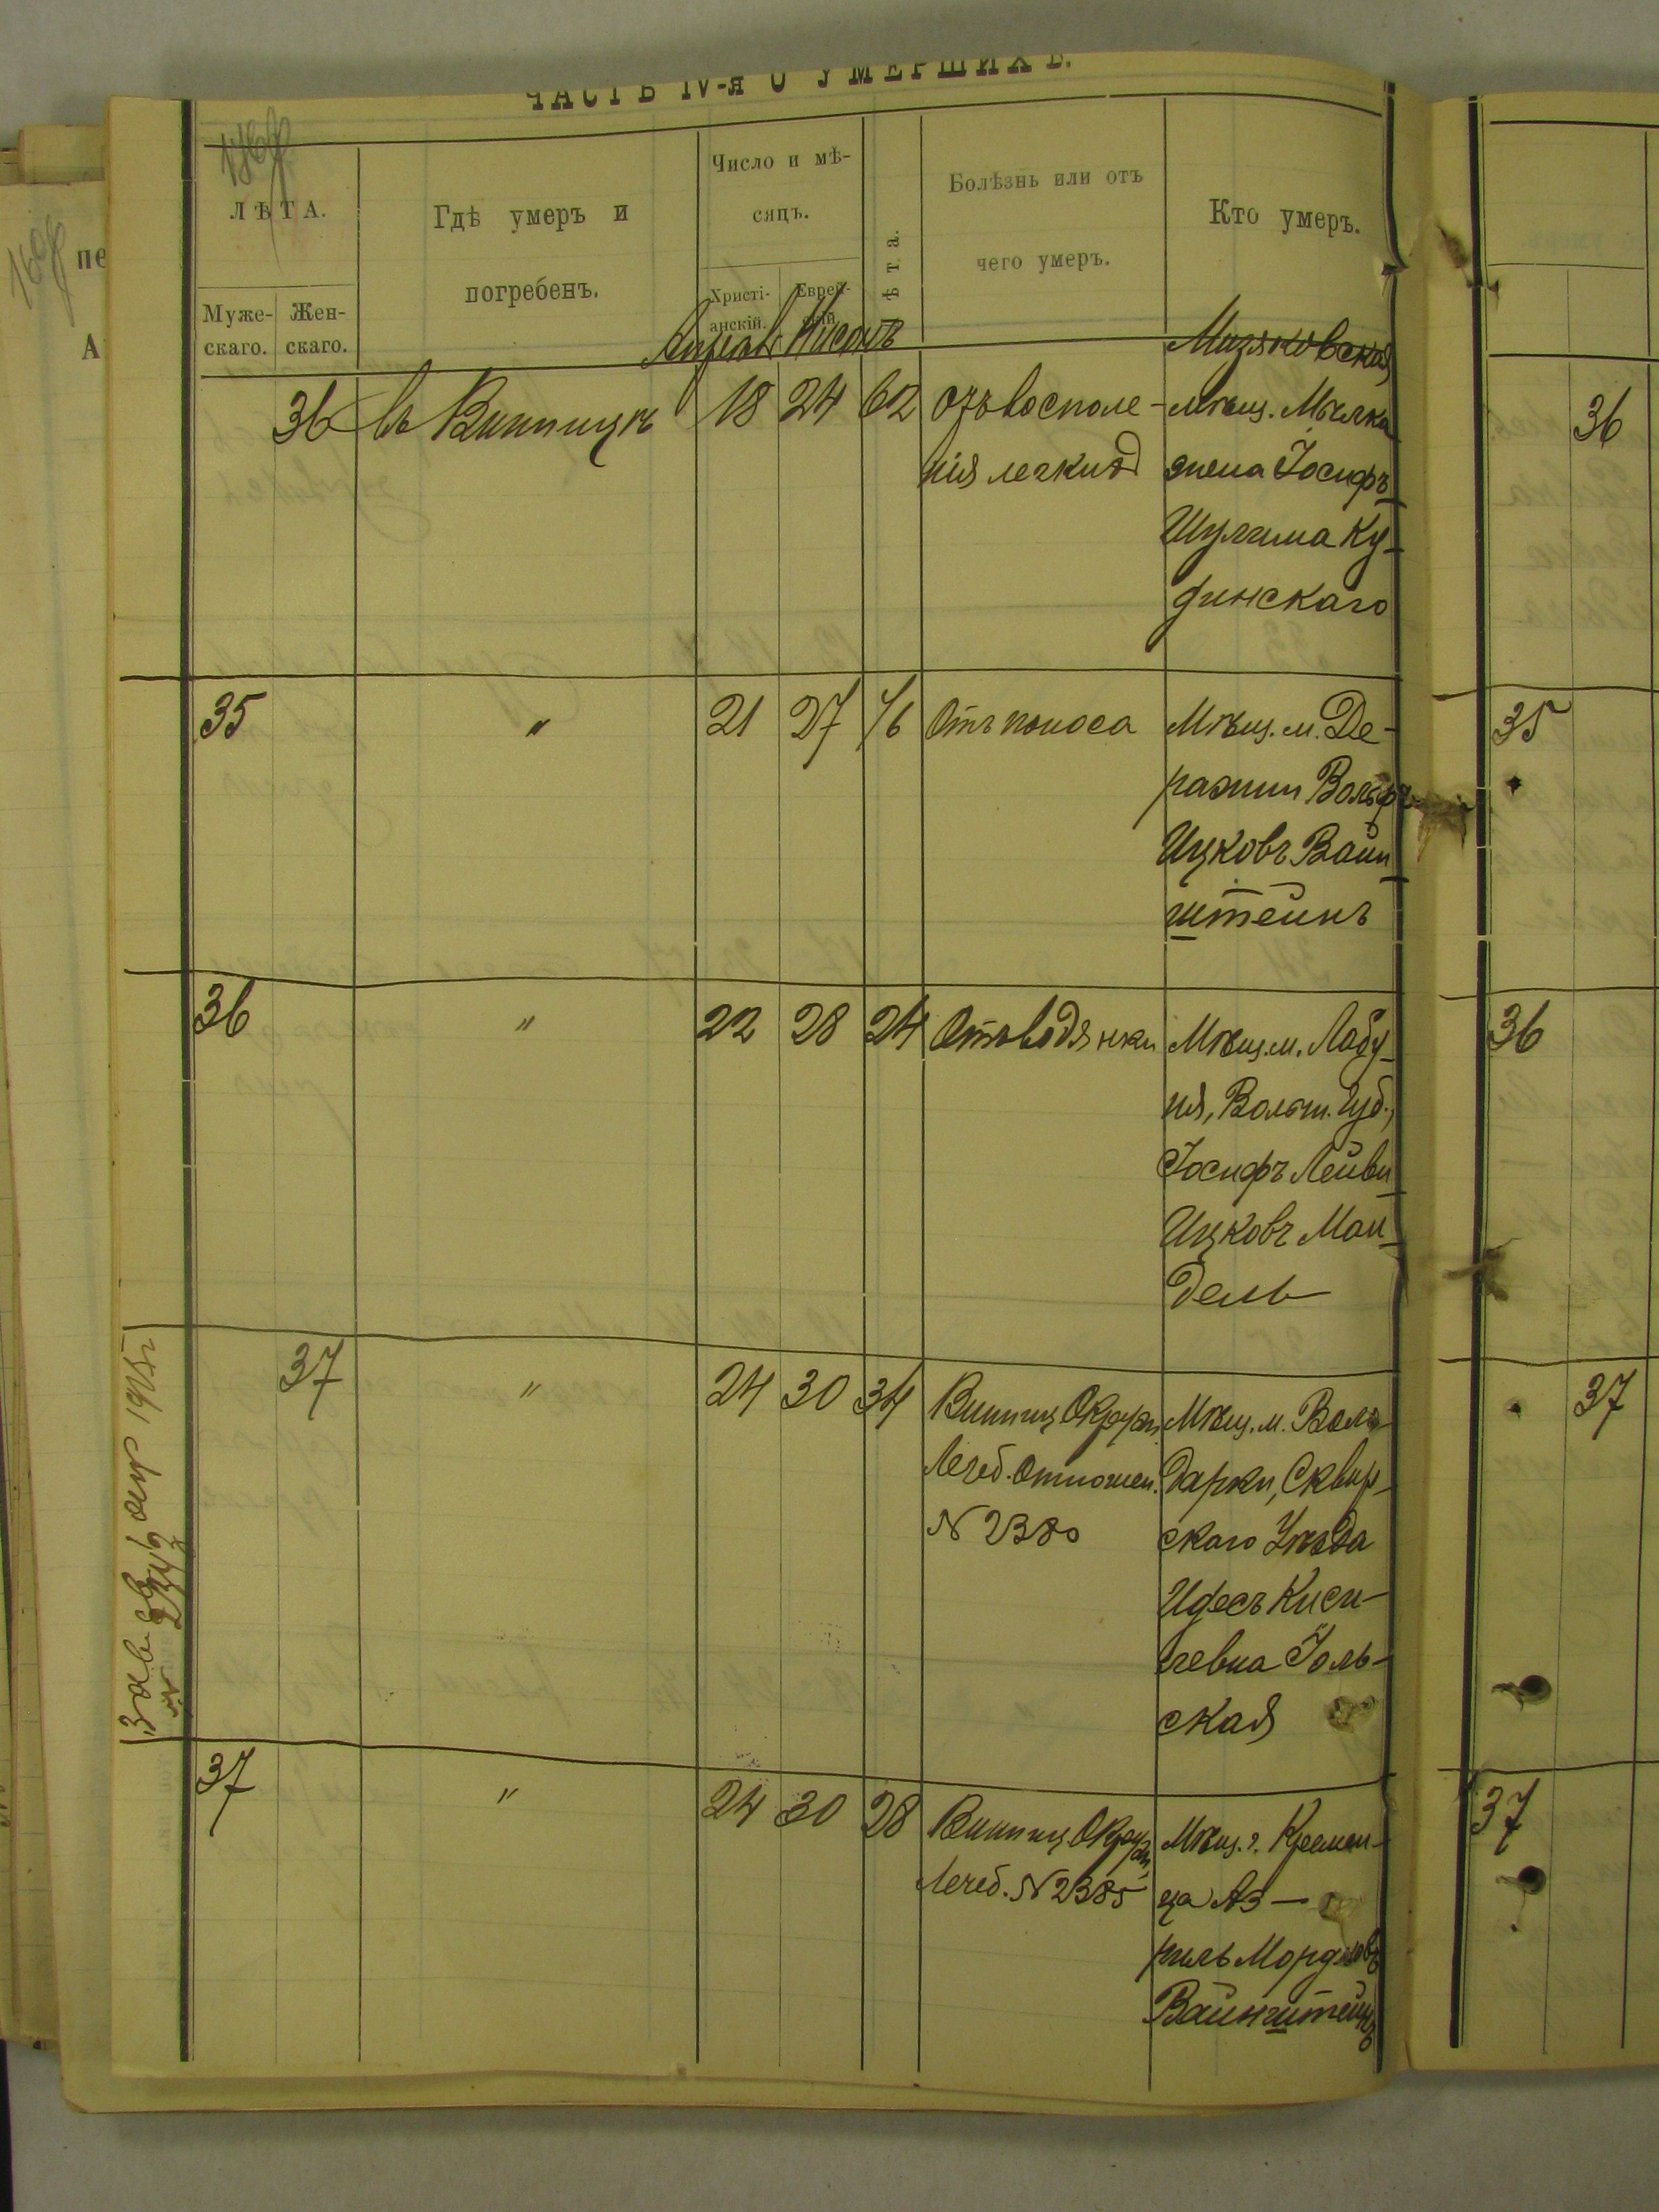 ЧАСТЬ IV-я О УМЕРШИХЪ.
ЛѢТА.
Муже-
скаго.
Жен-
скаго.
Гдѣ умеръ и
погребенъ.
Число и мѣ-
сяцъ.
Христі-
анскій.
Еврей-
скій.
ѣта.
Болѣзнь или отъ
чего умеръ.
Кто умеръ.
Апрель Нисонъ
36 въ Винницѣ 18 24 62
отъ воспале-
нія легкихъ
Мизяковская
мѣщ. Мѣлка
жена Іосифъ
Шулима Ку-
динскаго
36
35 " 21 27 1/6
Отъ поноса
Мѣщ. м. Де-
ражни Вольфъ
Ицковъ Вайн
штейнъ
35
36 " 22 28 24
Отъ водянки
Мѣщ. м. Лабу-
ня, Волын. губ.,
Іосифъ Лейви
Ицковъ Ман-
дель
36
37 " 24 30 34
Винниц. Окруж.
Лечеб. Отношен.
N 2380
Мѣщ. м. Воло-
дарки, Сквир-
скаго Уѣзда
Идесъ Киси-
левна Голь-
ская
37
37 " 24 30 28
Винниц. Окруж.
Лечеб. N 2385
Мѣщ. г. Кремен-
ца Аз-
риль Мордковъ
Вайнштейнъ
37
пе
А